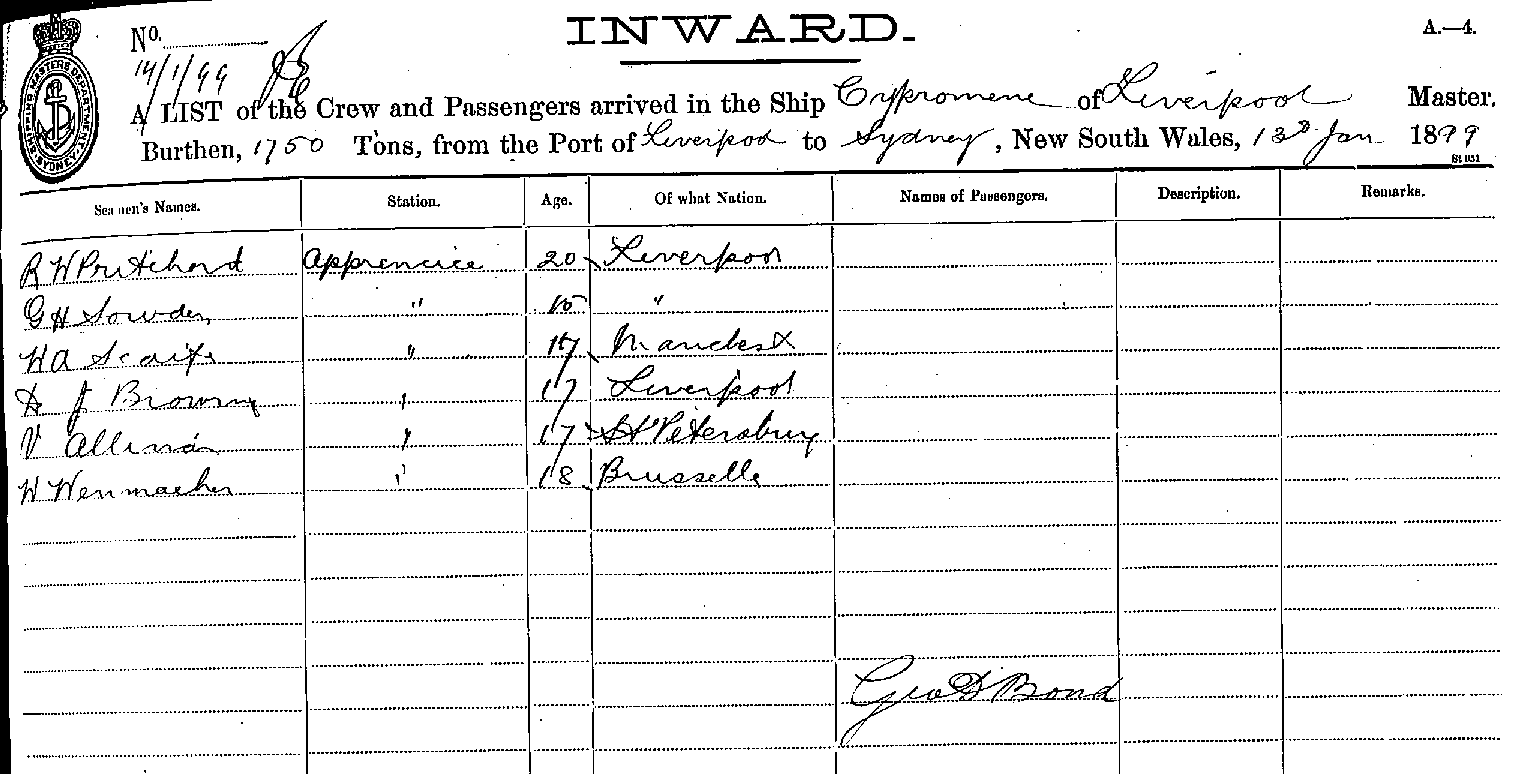 INWARD.
A.—4.
No.
14/1/99
A LIST of the Crew and Passengers arrived in the Ship Cypromene of Liverpool Master.
Burthen, 1750 Tons, from the Port of Liverpool to Sydney, New South Wales, 13 Jan 1899
St 031
SHIPPING MASTERS DEPARTMENT. SYDNEY.
Seamen's Names. Station. Age. Of what Nation. Names of Passengers. Description. Remarks.
R W Pritchard Apprencice 20 Liverpool
G H Sowden " "
H A Scaife " 17 Manchest
J Browne " 17 Liverpool
V " 17 St Petersburg
W Wenmaeker " 18 Brusselle
Geo D Bond